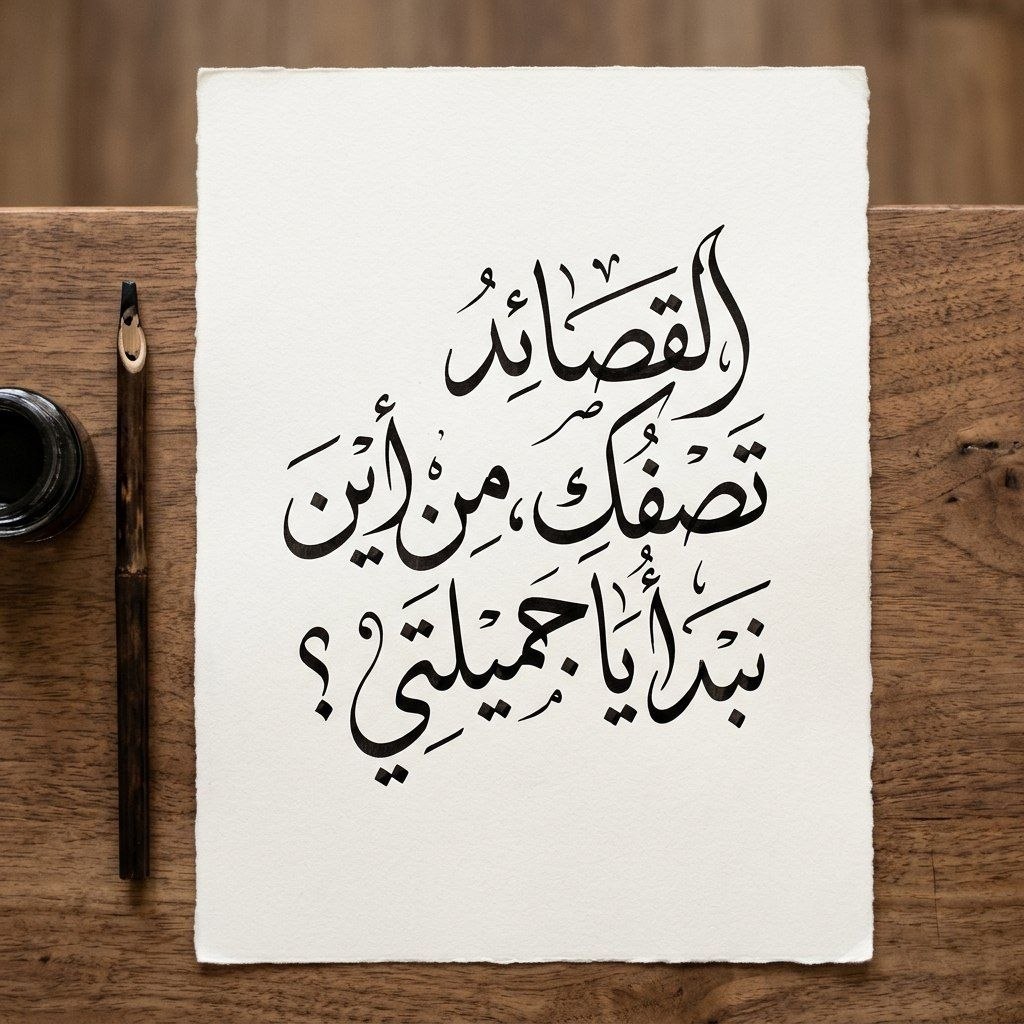 القَصَائِدُ
تَصْفُكِ، مِن أَيْنَ
نَبْدَأُ يَا جَمِيْلَتِي؟